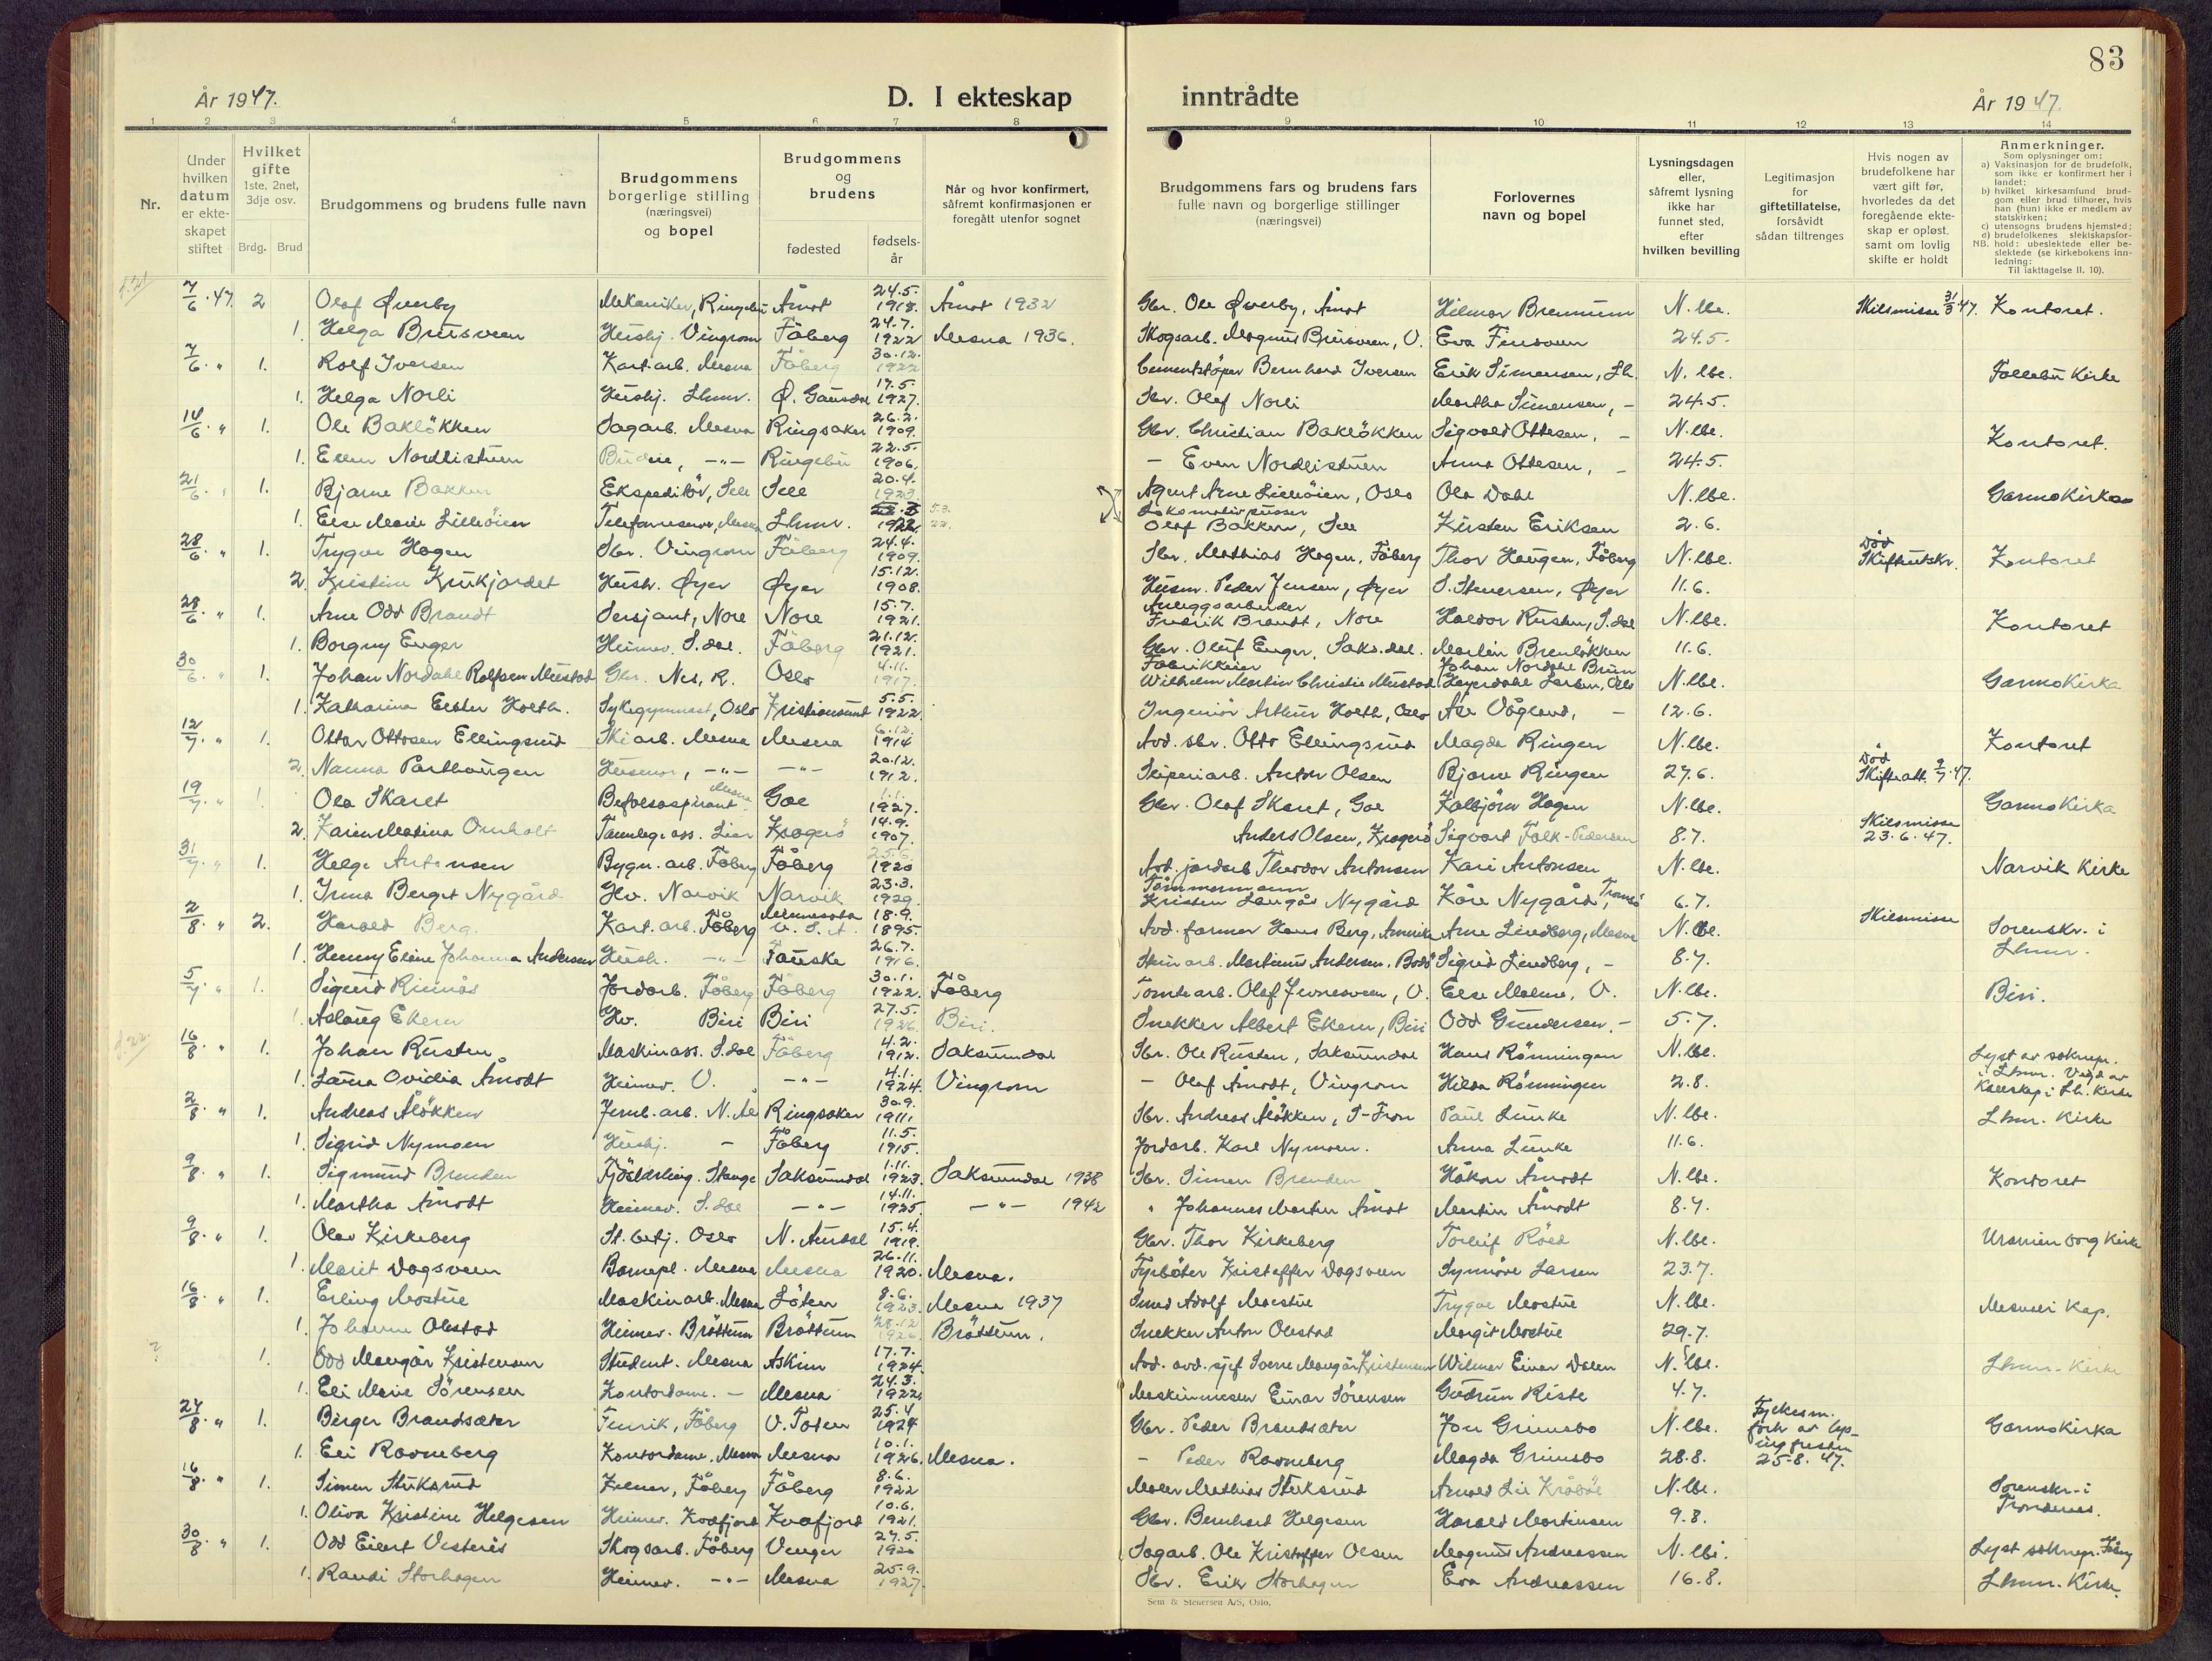 83
År 1947.
D. I ekteskap inntrådte
År 1947.
1 2 3 4 5 6 7 8 9 10 11 12 13 14
Nr.
Under hvilken datum er ekteskapet stiftet
Hvilket gifte 1ste, 2net, 3dje osv.
Brdg. Brud
Brudgommens og brudens fulle navn
Brudgommens borgerlige stilling (næringsvei) og bopel
Brudgommens og brudens
fødested
fødselsår
Når og hvor konfirmert, såfremt konfirmasjonen er foregått utenfor sognet
Brudgommens fars og brudens fars fulle navn og borgerlige stillinger (næringsvei)
Forlovernes navn og bopel
Lysningsdagen eller, såfremt lysning ikke har funnet sted, efter hvilken bevilling
Legitimasjon for giftetillatelse, forsåvidt sådan tiltrenges
Hvis nogen av brudefolkene har vært gift før, hvorledes da det foregående ekteskap er opløst, samt om lovlig skifte er holdt
Anmerkninger.
Som oplysninger om:
a) Vaksinasjon for de brudefolk, som ikke er konfirmert her i landet;
b) hvilket kirkesamfund brudgom eller brud tilhører, hvis han (hun) ikke er medlem av statskirken;
c) utensogns brudens hjemsted;
d) brudefolkenes slekiskapsforhold: ubeslektede eller beslektede (se kirkebokens innledning:
NB. Til iakttagelse II. 10).
7/6. 47. 2 Olaf Øverby Mekaniker, Ringebu Åmot 24.5. 1918. Åmot 1932 Gbr. Ole Øverby, Åmot Hilmar Brennum N. lbe. Skilsmisse 31/3 47. Kontoret.
1. Helga Brusveen Hushj. Vingrom Fåberg 24.7. 1922 Mesna 1936. Skogsarb. Magnus Brusveen, V. Eva Finsveen 24.5.
7/6. " 1. Rolf Iversen Kart.arb. Mesna Fåberg 30.12. 1922 Cementstöper Bernhard Iversen Erik Simensen, Lh. N. lbe. Follebu Kirke
1. Helga Norli Hushj. Lhmr. Ø. Gausdal 17.5. 1927. Sbr. Olaf Norli Martha Simensen, - 24.5.
14/6. " 1. Ole Baklökken Sagarb. Mesna Ringsaker 26.2. 1909. Gbr. Christian Baklökken Sigvald Ottesen, - N. lbe. Kontoret.
1. Ellen Nordlistuen Budeie, -"- Ringebu 22.5. 1906. - Even Nordlistuen Anna Ottesen, - 24.5.
21/6. " 1. Bjarne Bakken Ekspeditör, Sell Sell 20.4. 1923. Agent Arne Lilleöien, Oslo Ola Dahl N. lbe. Garmo Kirke
1. Else Marie Lilleöien Telefoneserv., Mesna Lhmr. 1922. Lokomotivpusser Olaf Bakken, Sell Kirsten Eriksen 2.6.
28/6. " 1. Trygve Hagen Sbr. Vingrom Fåberg 24.4. 1909. Sbr. Mathias Hagen, Fåberg Thor Haugen, Fåberg N. lbe. Död Skifteutskr. Kontoret
2. Kristine Krukjordet Hustr. Øyer Øyer 15.12. 1908. Husm. Peder Jensen, Øyer S. Stenersen, Øyer 11.6.
28/6. " 1. Arne Odd Brandt Sersjant, Nore Nore 15.7. 1921. Anleggsarbeider Fredrik Brandt, Nore Haldor Rusten, S.dal N. lbe. Kontoret
1. Borgny Enger Heimev. S.dal. Fåberg 21.12. 1921. Gbr. Oluf Enger, Saks.dal. Marlin Brenlökken 11.6.
30/6. " 1. Johan Nordahl Rolfsen Mustad Gbr. Nes, R. Oslo 4.11. 1917. Fabrikkeier Wilhelm Martin Christie Mustad Johan Nordahl Brun Heyerdahl Larsen, Oslo N. lbe. Garmo Kirka
1. Katharina Ester Holth. Sykegymnast, Oslo Kristiansund 5.5. 1922. Ingeniör Arthur Holth, Oslo Åse Vågland, - 12.6.
12/7. " 1. Ottar Ottosen Ellingsrud Skiarb. Mesna Mesna 6.12. 1914 Avd. sbr. Otto Ellingsrud Magda Ringen N. lbe. Kontoret
2. Nanna Parthaugen Husmor, -"- -"- 20.12. 1912. Sliperiarb. Anton Olsen Bjarne Ringen 27.6. Död Skifteatt. 9/7 47.
19/7. " 1. Ola Skaret Befalsaspirant Mesna Gol 1.1. 1927. Gbr. Olaf Skaret, Gol Kolbjörn Hagen N. lbe. Garmo Kirka
2. Karen Matina Omholt Tannlegeass. Lier Kragerö 14.9. 1907. Anders Olsen, Kragerö Sigvart Falk-Pedersen 8.7. Skilsmisse 23.6.47.
31/7. " 1. Helge Antonsen Bygn. arb. Fåberg Fåberg 25.6. 1920 Avd. jordarb. Theodor Antonsen Kari Antonsen N. lbe. Narvik Kirke
1. Irma Berget Nygård Hv. Narvik Narvik 23.3. 1929. Tömmermann Kristen Langås Nygård Kåre Nygård, Tromsö 6.7.
2/8. " 2. Harald Berg. Kart.arb. Fåberg Minnesota U.S.A. 18.9. 1895. Avd. farmer Hans Berg, Amerika Arne Lindberg, Mesna N. lbe. Skilsmisse Sorenskr. i Lhmr.
1. Henny Eline Johanna Andersen Hush. -"- Fauske 26.7. 1916. Martinus Andersen, Bodö Sigrid Lindberg, - 8.7.
5/7. " 1. Sigurd Rusnås Jordarb. Fåberg Fåberg 30.1. 1922. Fåberg Tomtearb. Olaf Jevnesveen, V. Else Malme, V. N. lbe. Biri.
1. Aslaug Ekern Hv. Biri Biri 27.5. 1926. Biri. Snekker Albert Ekern, Biri Odd Gundersen, - 5.7.
16/8. " 1. Johan Rusten Maskinass. S.dal Fåberg 4.2. 1912. Saksumdal Sbr. Ole Rusten, Saksumdal Hans Rönningen N. lbe. Lyst av soknepr. i Lhmr. Vigd av Kallskap i Lh. Kirke
1. Laura Ovidia Åmodt Heimev. V. -"- 4.1. 1924. Vingrom - Olaf Åmodt, Vingrom Hilda Rönningen 2.8.
2/8. " 1. Andreas Ålökken Jernb.arb. N. Ål Ringsaker 30.9. 1911. Sbr. Andreas Ålökken, S-Fron Paul Lunke N. lbe. Lhmr. Kirke
1. Sigrid Nymoen Hushj. - Fåberg 11.5. 1915. Jordarb. Karl Nymoen. Anna Lunke 11.6.
9/8. " 1. Sigmund Brenden Fjöslærling. Stange Saksumdal 1.11. 1923. Saksumdal 1938 Sbr. Simen Brenden Håkon Åmodt N. lbe. Kontoret
1. Martha Åmodt Heimev. S.dal -"- 14.11. 1925. -"- 1942 " Johannes Morten Åmot Martin Åmodt 8.7.
9/8. " 1. Olav Kirkeberg St. betj. Oslo N. Aurdal 15.4. 1919. Gbr. Thor Kirkeberg Torleif Röed N. lbe. Uranienborg Kirke
1. Marit Dagsveen Barnepl. Mesna Mesna 26.11. 1920. Mesna. Fyrböter Kristoffer Dagsveen Synnöve Larsen 23.7.
16/8. " 1. Erling Mostue Maskinarb. Mesna Löten 8.6. 1923. Mesna 1937 Smed Adolf Mostue Trygve Mostue N. lbe. Mesnali Kap.
1. Johanne Olestad Heimev. Bröttum Bröttum 28.12 1926. Bröttum. Snekker Anton Olestad Margit Mostue 29.7.
? 1. Odd Maugår Kristensen Student. Mesna Askim 17.7. 1924. Avd. avd.sjef Sverre Maugår Kristensen Wilmar Einar Dalen N. lbe. Lhmr. Kirke
1. Eli Marie Sörensen Kontordame. - Mesna 24.3. 1922. Maskinmester Einar Sörensen Gudrun Riste 4.7.
24/8. " 1. Birger Brandsæter Fenrik, Fåberg V. Toten 25.4. 1924 Gbr. Peder Brandsæter Jon Grimsbo N. lbe. Fylkesm. fork. av lysingfristen 25.8.47. Garmo Kirka
1. Eli Ravneberg Kontordame, Mesna Mesna 10.1. 1926. Mesna. - Peder Ravneberg Magda Grimsbo 28.8.
16/8. " 1. Simen Stuksrud Kelner, Fåberg Fåberg 8.6. 1922 Maler Mathias Stuksrud Arnold Lie Kråböl N. lbe. Sorenskr. i Trondenes.
1. Oliva Kristine Helgesen Heimev. Kvæfjord Kvæfjord 10.6. 1921. Gbr. Bernhart Helgesen Harald Martinsen 9.8.
30/8. " 1. Odd Eilert Vesterås Skogsarb. Fåberg Vinger 27.5. 1920 Sagarb. Ole Kristoffer Olsen Magnus Andreassen N. lbe. Lyst soknepr. Fåberg
1. Randi Storhagen Heimev. -"- Mesna 25.9. 1927. Sbr. Erik Storhagen Eva Andreassen 16.8. Lhmr. Kirke.
Sem & Stenersen A/S, Oslo.